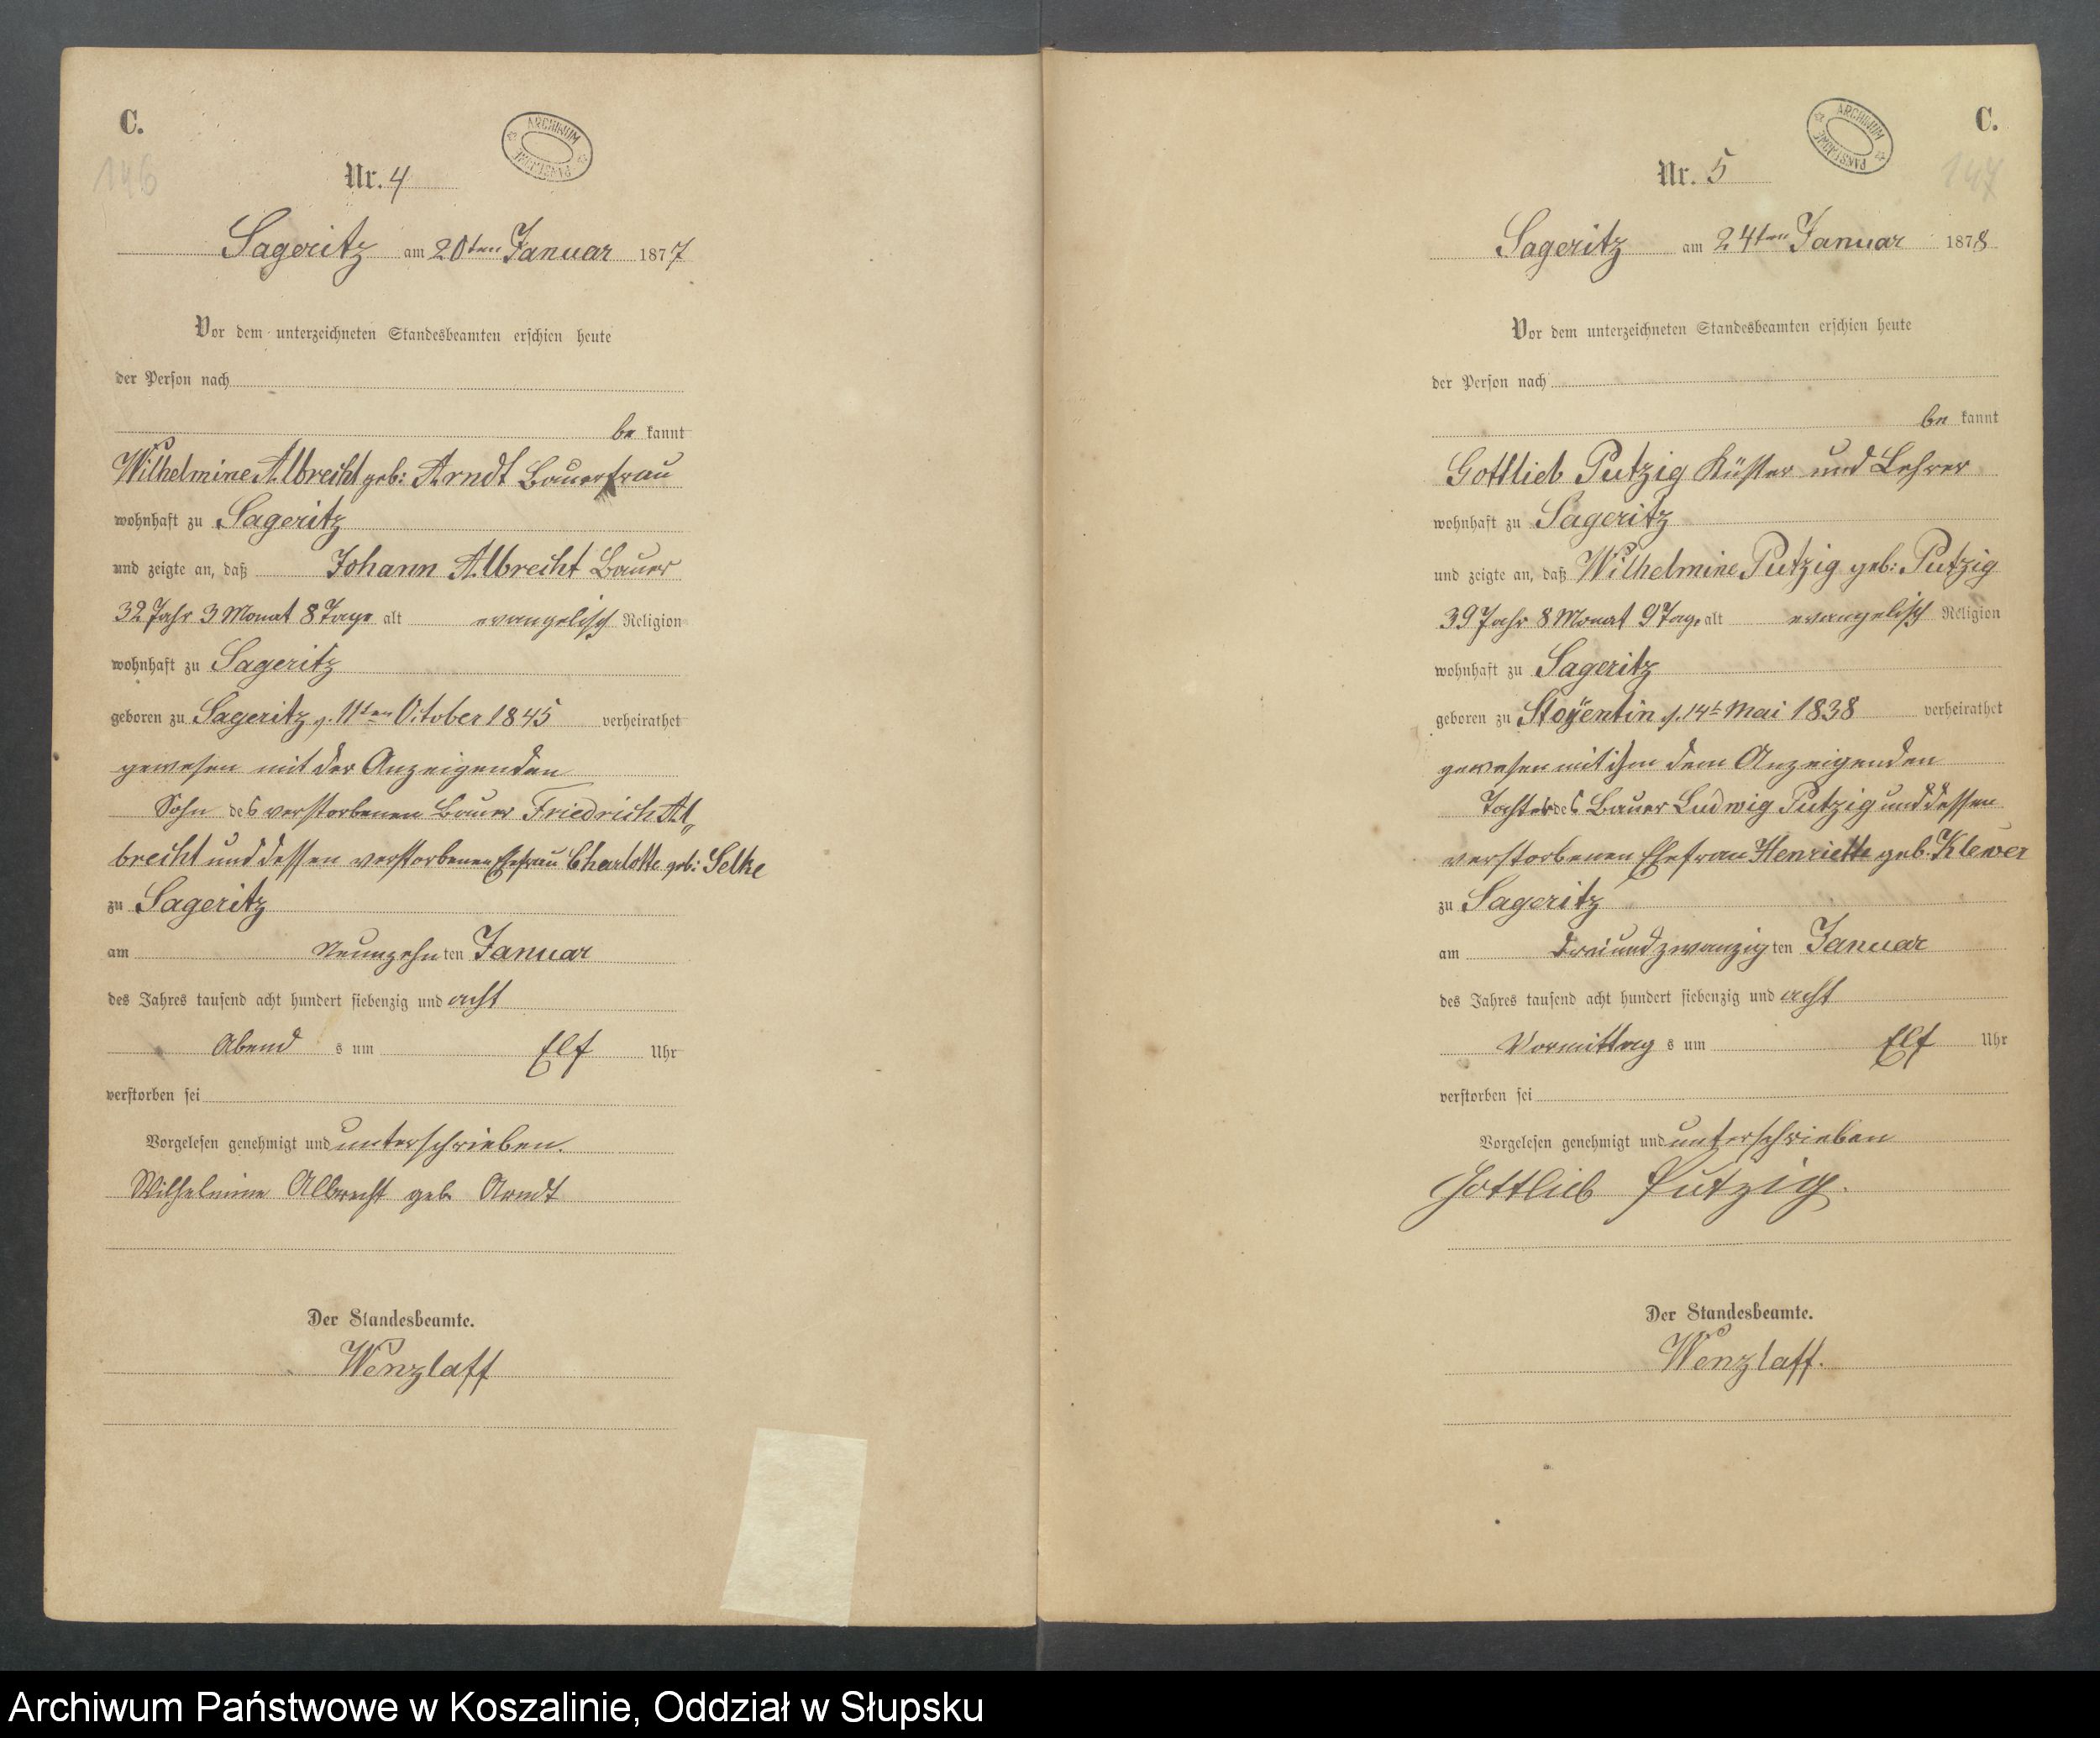 C.
ARCHIWUM PAŃSTWOWE
146
Nr. 4
Sageritz am 20ten Januar 1877
Vor dem unterzeichneten Standesbeamten erschien heute
der Person nach
be kannt
Wilhelmine Albrecht geb: Arndt Bauerfrau
wohnhaft zu Sageritz
und zeigte an, daß Johann Albrecht Bauer
32 Jahr 3 Monat 8 Tage alt evangelisch Religion
wohnhaft zu Sageritz
geboren zu Sageritz d. 11ten October 1845 verheirathet
gewesen mit der Anzeigenden
Sohn des verstorbenen Bauer Friedrich Al„
brecht und dessen verstorbenen Ehefrau Charlotte geb: Selke
zu Sageritz
am Neunzehnten Januar
des Jahres tausend acht hundert siebenzig und acht
Abend s um Elf Uhr
verstorben sei
Vorgelesen genehmigt und unterschrieben.
Wilhelmine Albrecht geb Arndt
Der Standesbeamte.
Wenzlaff
C.
ARCHIWUM PAŃSTWOWE
147
Nr. 5
Sageritz am 24ten Januar 1878
Vor dem unterzeichneten Standesbeamten erschien heute
der Person nach
be kannt
Gottlieb Putzig Küster und Lehrer
wohnhaft zu Sageritz
und zeigte an, daß Wilhelmine Putzig geb: Putzig
39 Jahr 8 Monat 9 Tage alt evangelisch Religion
wohnhaft zu Sageritz
geboren zu Stoÿentin d. 14t Mai 1838 verheirathet
gewesen mit ihm dem Anzeigenden
Tochter des Bauer Ludwig Putzig und dessen
verstorbenen Ehefrau Henriette geb. Klewer
zu Sageritz
am Dreiundzwanzigten Januar
des Jahres tausend acht hundert siebenzig und acht
Vormittag s um Elf Uhr
verstorben sei
Vorgelesen genehmigt und unterschrieben
Gottlieb Putzig.
Der Standesbeamte.
Wenzlaff.
Archiwum Państwowe w Koszalinie, Oddział w Słupsku